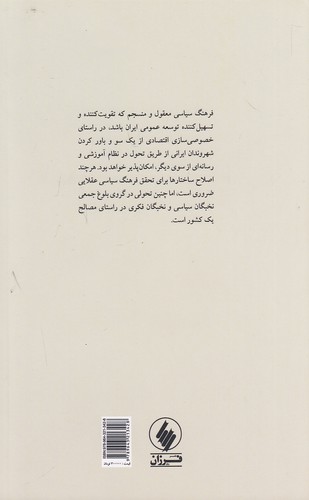 فرهنگ سیاسی معقول و منسجم که تقویت‌کننده و
تسهیل‌کننده توسعه عمومی ایران باشد، در راستای
خصوصی‌سازی اقتصادی از یک سو و باور کردن
شهروندان ایرانی از طریق تحول در نظام آموزشی و
رسانه‌ای از سوی دیگر، امکان‌پذیر خواهد بود. هرچند
اصلاح ساختارها برای تحقق فرهنگ سیاسی عقلایی
ضروری است، اما چنین تحولی در گروی بلوغ جمعی
نخبگان سیاسی و نخبگان فکری در راستای مصالح
یک کشور است.
فرزان